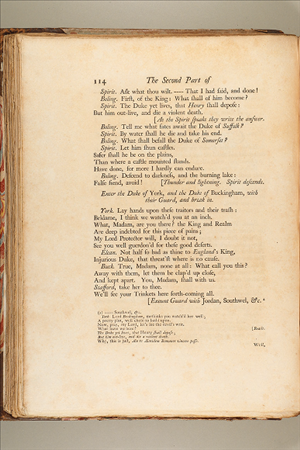 114 The Second Part of
Spirit. Ask what thou wilt. ---- That I had said, and done!
Boling. First, of the King: What shall of him become?
Spirit. The Duke yet lives, that Henry shall depose:
But him out-live, and die a violent death.
[As the Spirit speaks they write the answer.
Boling. Tell me what fates await the Duke of Suffolk?
Spirit. By water shall he die and take his end.
Boling. What shall befall the Duke of Somerset?
Spirit. Let him shun castles.
Safer shall he be on the plains,
Than where a castle mounted stands.
Have done, for more I hardly can endure.
Boling. Descend to darkness, and the burning lake:
False fiend, avoid! [Thunder and lightning. Spirit descends.
Enter the Duke of York, and the Duke of Buckingham, with
their Guard, and break in.
York. Lay hands upon these traitors and their trash:
Beldame, I think we watch'd you at an inch.
What, Madam, are you there? the King and Realm
Are deep indebted for this piece of pains;
My Lord Protector will, I doubt it not,
See you well guerdon'd for these good deserts.
Elean. Not half so bad as thine to England's King,
Injurious Duke, that threat'st where is no cause.
Buck. True, Madam, none at all: What call you this?
Away with them, let them be clap'd up close,
And kept apart. You, Madam, shall with us.
Stafford, take her to thee.
We'll see your Trinkets here forth-coming all.
[Exeunt Guard with Jordan, Southwel, &c.
(a) ---- Southwel, &c.
York. Lord Buckingham, methinks you watch'd her well;
A pretty plot, well chose to build upon.
Now, pray, my Lord, let's see the devil's writ.
What have we here? [Reads.
The Duke yet lives, that Henry shall depose;
But him out-live, and die a violent death.
Why, this is just, Aio te Æacidem Romanos vincere posse.
Well,